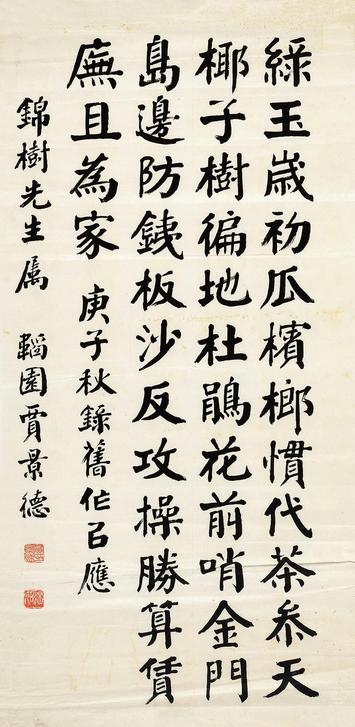 綠玉歲初瓜檳榔慣代茶叅天
椰子樹徧地杜鵑花前哨金門
島邊防銕板沙反攻操勝算賃
廡且為家 庚子秋錄舊作㠯應
錦樹先生属 韜園賈景德